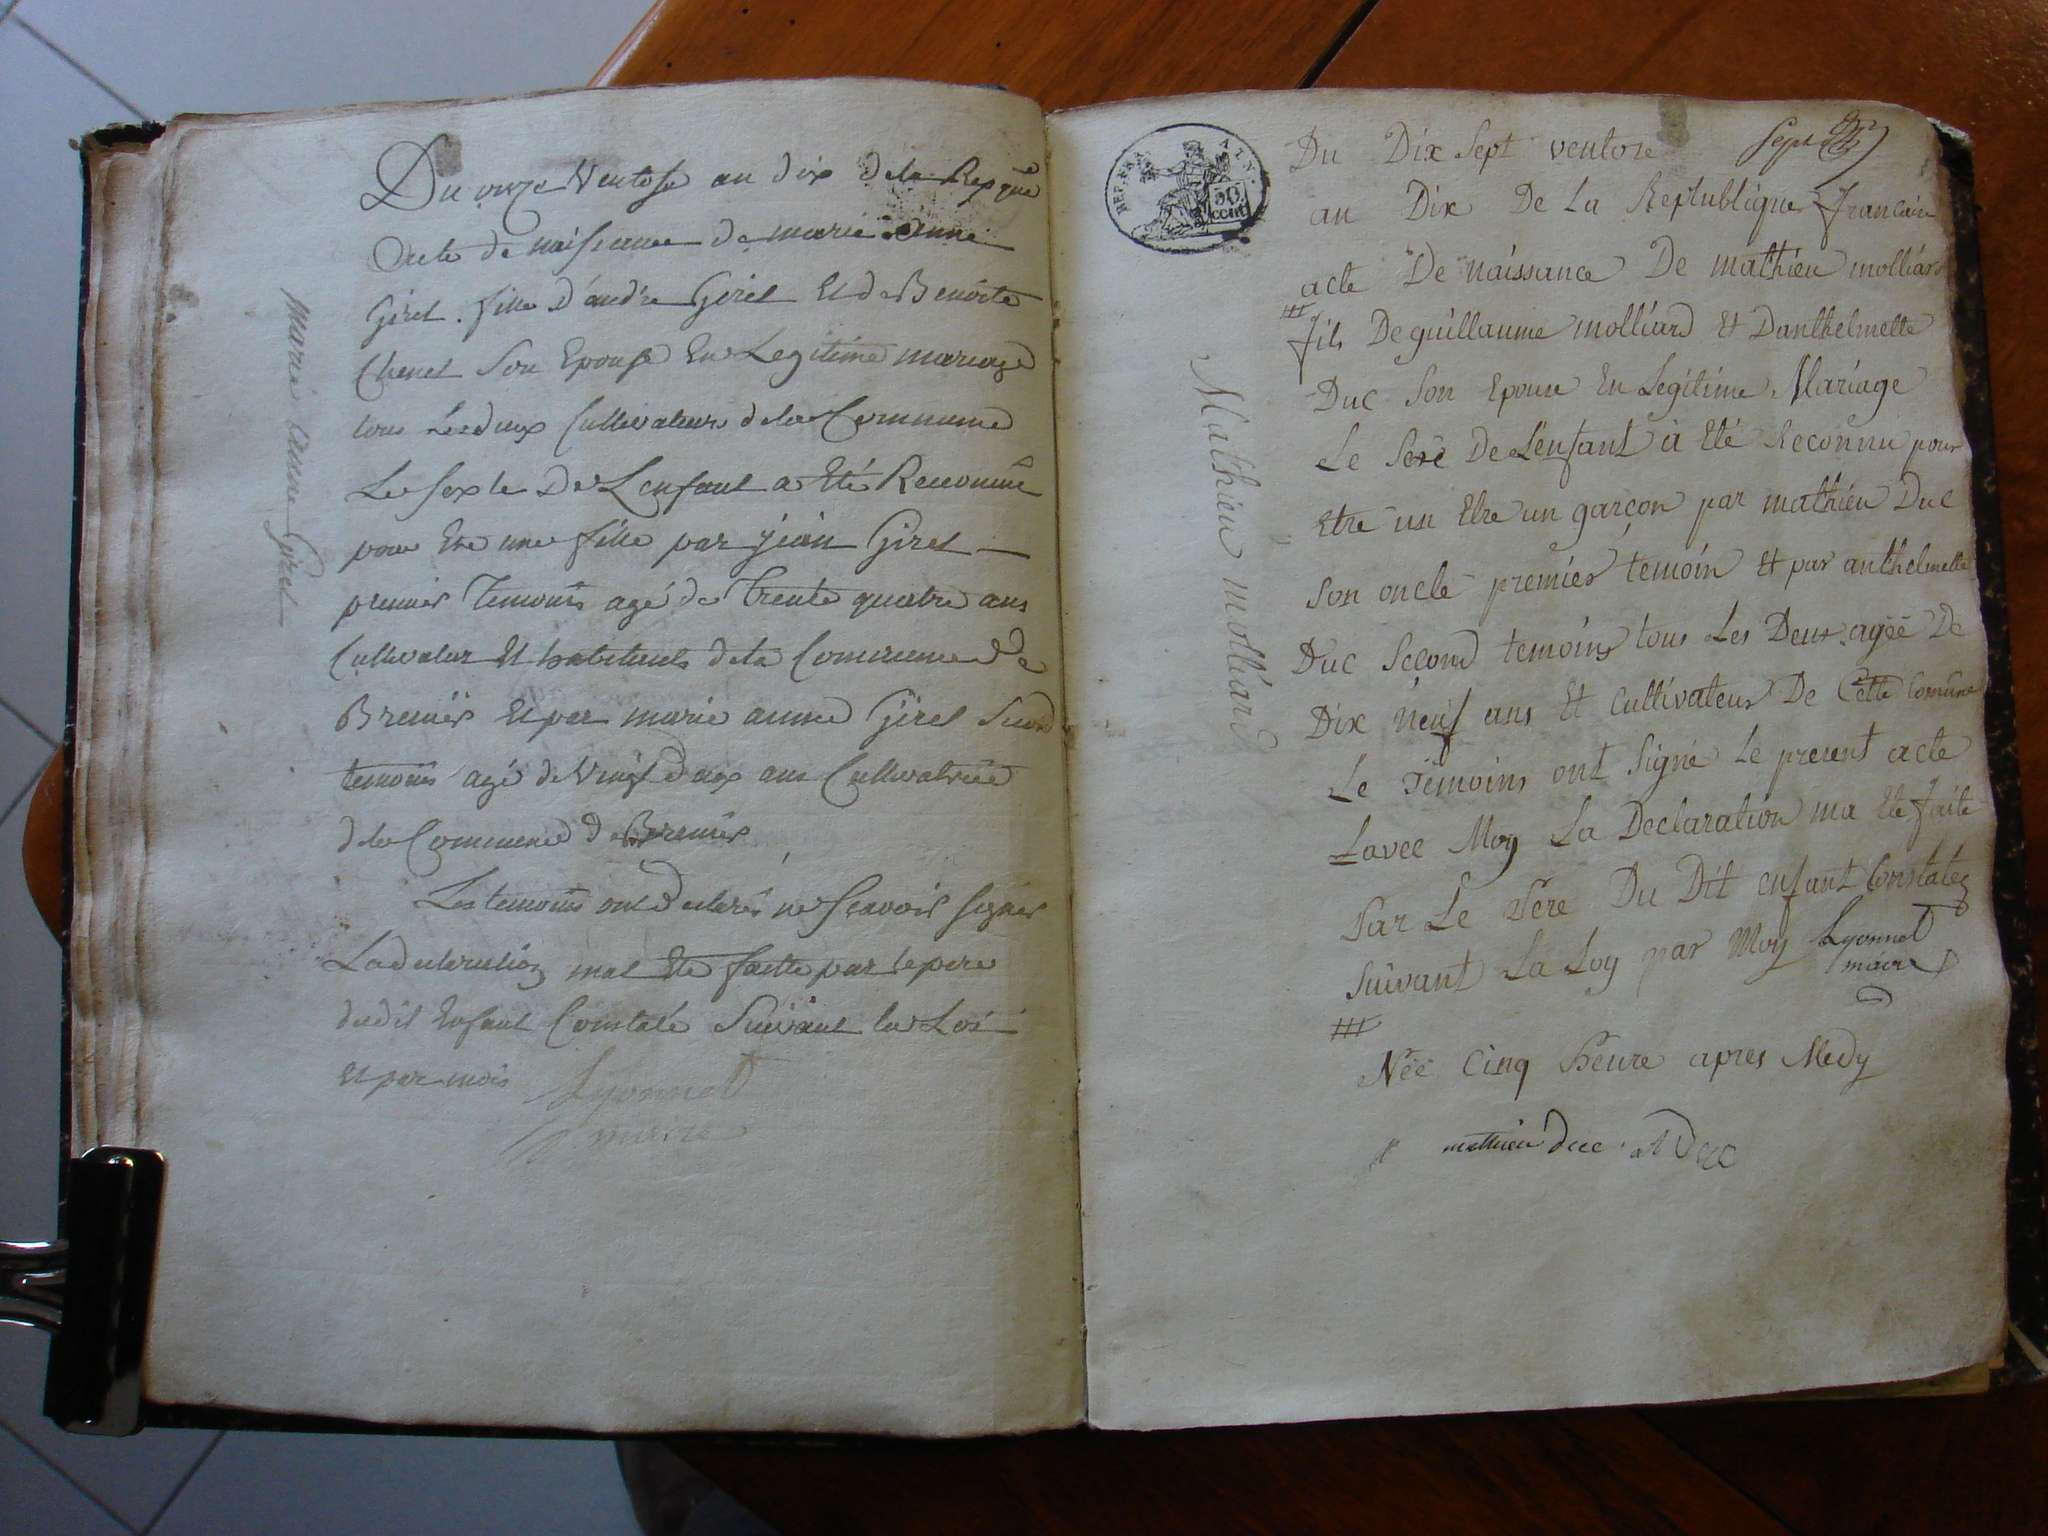 Du onze Ventose an dix de la Repque
Acte de naissance de marie anne
Giret fille d'andré Giret Et de Benoite
Chenet Son Epouse En Legitime mariage
tous Les deux Cultivateurs de la Commune
Le sexte De Lenfant a Eté Reconnue
pour Etre une fille par jean Giret
premier Temoins agé de trente quatre ans
Cultivateur Et habitants de la Commune de
Brenier Et par marie anne Giret Second
temoins agé de Vingt deux ans Cultivatrice
de la Commune de Brenier
Les temoins ont declarés ne scavoir signer
La declaration mat Ete faitte par le pere
dudit Enfant Constaté Suivant la Loi
Et par mois Lyonnet
maire
marie anne Giret
REP. FRA. AIN.
50 cent
Du Dix Sept ventose Sept
an Dix De La Republique francaise
acte De naissance De mathieu molliard
fils De guillaume molliard Et Danthelmette
Duc Son Epouse En Legitime Mariage
Le Sexe De Lenfant à Eté Reconnu pour
Etre un Etre un garçon par mathieu Duc
Son oncle premier temoin Et par anthelmette
Duc Second temoins tous Les Deux ageé De
Dix neuf ans Et Cultivateur De Cette Comune
Le Temoins ont Signe Le present acte
Lavec Moy La Declaration ma Ete faite
Par Le Pere Du Dit enfant Constatez
Suivant La Loy par Moy Lyonnet
maire
Neé Cinq heure apres Medy
mathieu duc A Duc
Mathieu molliard